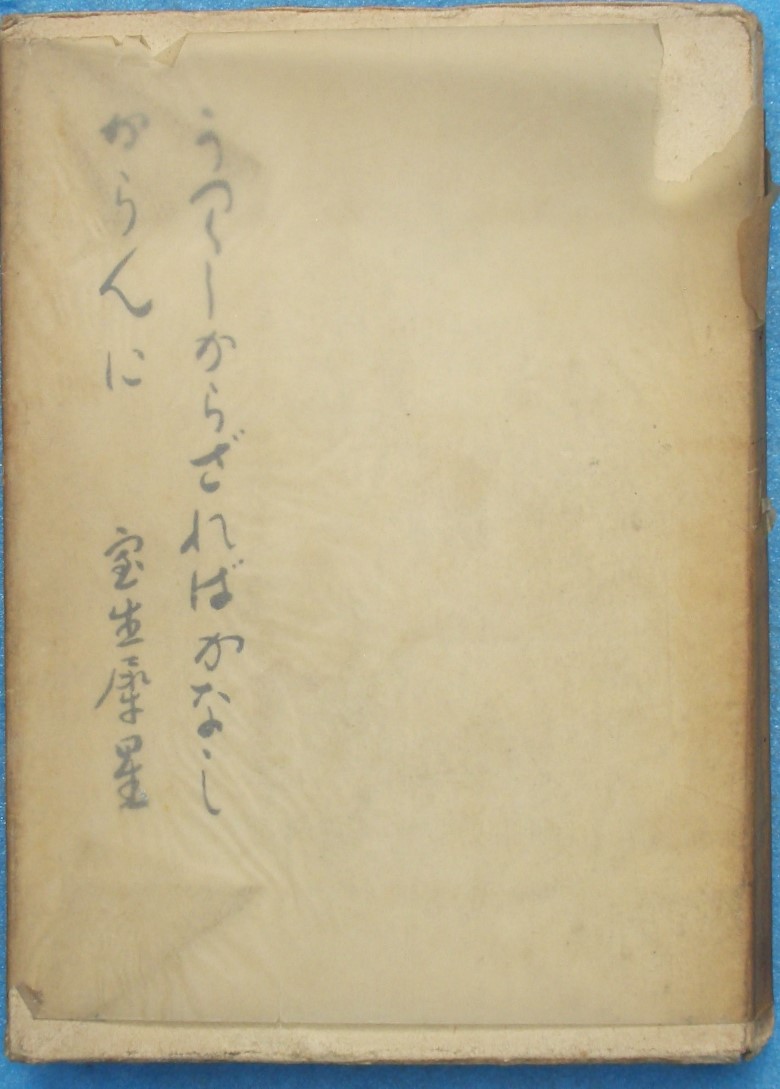 うつくしからざればかなし
からんに 室生犀星